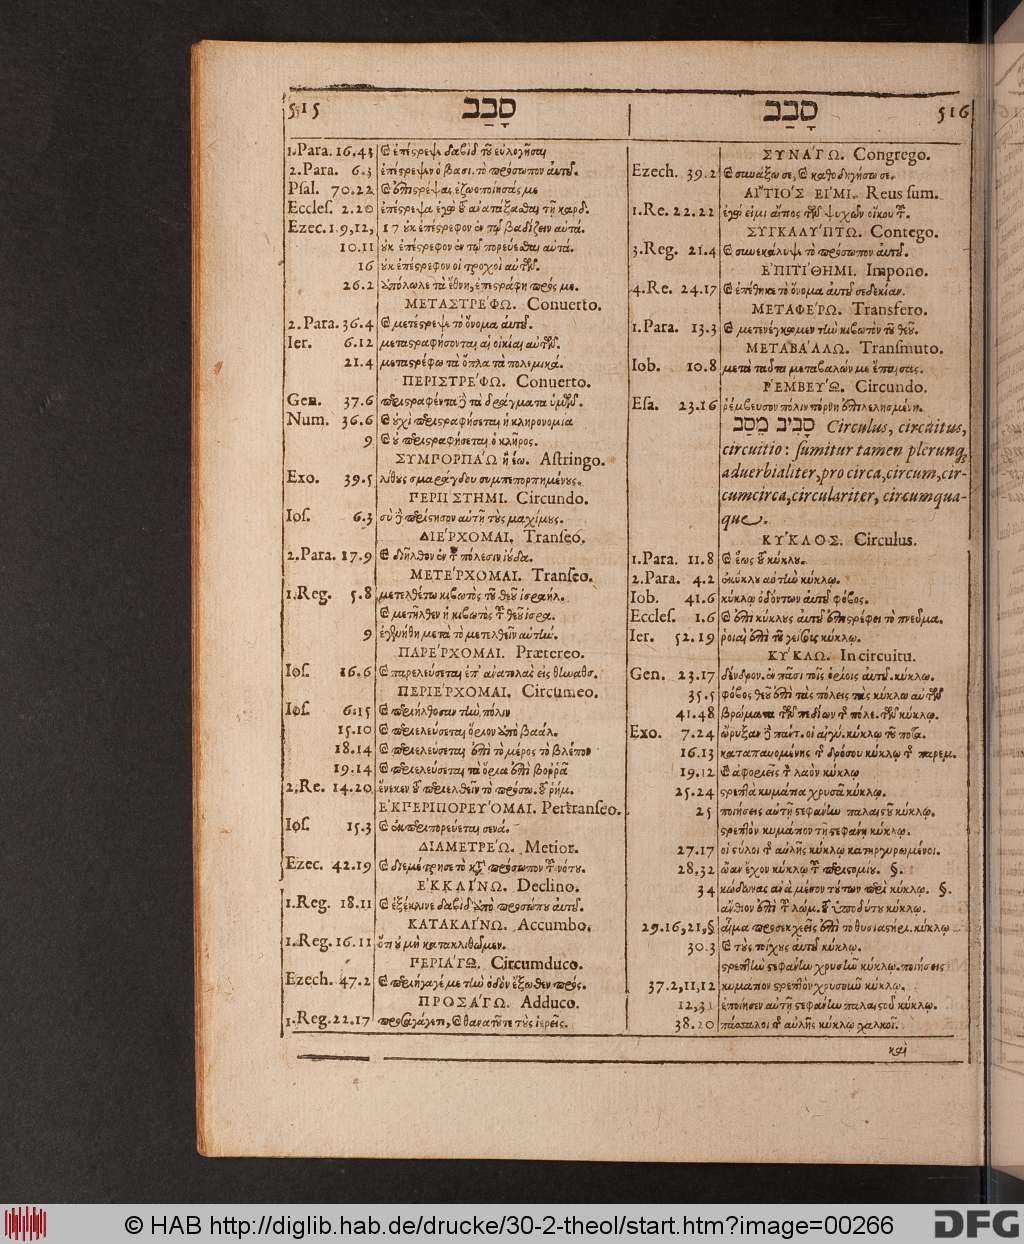 515 סָבַב
1.Para. 16.43 ϗ ἐπέστρεψε δαβὶδ τοῦ εὐλογῆσαι
2.Para. 6.3 ἐπέστρεψεν ὁ βασι. τὸ πρόσωπον αὐτοῦ.
Psal. 70.22 ϗ ἐπιστρέψας ἐζωοποίησάς με
Eccles. 2.20 ἐπέστρεψα ἐγὼ τοῦ ἀνατάξασθαι τῇ καρδ.
Ezec. 1.9,12, 17 οὐκ ἐπέστρεφον ἐν τῷ βαδίζειν αὐτά.
10.11 οὐκ ἐπέστρεφον ἐν τῷ πορεύεσθαι αὐτά.
16 οὐκ ἐπέστρεφον οἱ τροχοὶ αὐτῶν.
26.2 ἀπόλωλε τὰ ἔθνη, ἐπεστράφη πρός με.
ΜΕΤΑΣΤΡΕ´ΦΩ. Conuerto.
2.Para. 36.4 ϗ μετέστρεψε τὸ ὄνομα αὐτοῦ.
Ier. 6.12 μεταστραφήσονται αἱ οἰκίαι αὐτῶν.
21.4 μεταστρέφω τὰ ὅπλα τὰ πολεμικά.
ΠΕΡΙΣΤΡΕ´ΦΩ. Conuerto.
Gen. 37.6 περιστραφέντα ϗ τὰ δράγματα ὑμῶν.
Num. 36.6 ϗ οὐχὶ περιστραφήσεται ἡ κληρονομία
9 ϗ οὐ περιστραφήσεται ὁ κλῆρος.
ΣΥΜΠΟΡΠΑ´Ω ἢ έω. Astringo.
Exo. 39.5 λίθους σμαράγδου συμπεπορπημένους.
ΠΕΡΙΙΣΤΗΜΙ. Circundo.
Ios. 6.3 σὺ ϗ περίστησον αὐτῇ τοὺς μαχίμους.
ΔΙΕ´ΡΧΟΜΑΙ. Transeo.
2.Para. 17.9 ϗ διῆλθον ἐν τ πόλεσιν ἰούδα.
ΜΕΤΕ´ΡΧΟΜΑΙ. Transeo.
1.Reg. 5.8 μετελθέτω κιβωτὸς τοῦ θεοῦ ἰσραήλ.
ϗ μετῆλθεν ἡ κιβωτὸς τ θεοῦ ἰσρα.
9 ἐγενήθη μετὰ τὸ μετελθεῖν αὐτὴν.
ΠΑΡΕ´ΡΧΟΜΑΙ. Prætereo.
Ios. 16.6 ϗ παρελεύσεται ἐπ' ἀνατολὰς εἰς θηναθσ.
ΠΕΡΙΕ´ΡΧΟΜΑΙ. Circumeo.
Ios. 6.15 ϗ περιήλθοσαν τὴν πόλιν
15.10 ϗ περιελεύσεται ὅριον ἀπὸ βαάλ.
18.14 ϗ περιελεύσεται ἐπὶ τὸ μέρος τὸ βλέπον
19.14 ϗ περιελεύσεται τὰ ὅρια ἐπὶ βοῤῥᾶ
2.Re. 14.20 ἕνεκεν τοῦ περιελθεῖν τὸ πρόσω. τοῦ ῥήμ.
ἘΚΠΕΡΙΠΟΡΕΥ´ΟΜΑΙ. Pertranseo.
Ios. 15.3 ϗ ἐκπεριπορεύεται σενά.
ΔΙΑΜΕΤΡΕ´Ω. Metior.
Ezec. 42.19 ϗ διεμέτρησε τὸ κατὰ πρόσωπον τ νότου.
ἘΚΚΛΙ´ΝΩ. Declino.
1.Reg. 18.11 ϗ ἐξέκλινε δαβὶδ ἀπὸ προσώπου αὐτοῦ.
ΚΑΤΑΚΛΙ´ΝΩ. Accumbo.
1.Reg. 16.11 ὅτι οὐ μὴ κατακλιθῶμεν.
ΠΕΡΙΑ´ΓΩ. Circumduco.
Ezech. 47.2 ϗ περιήγαγέ με τὴν ὁδὸν ἔξωθεν πρός.
ΠΡΟΣΑ´ΓΩ. Adduco.
1.Reg. 22.17 προσαγάγετε, ϗ θανατοῦτε τοὺς ἱερεῖς.
סָבַב 516
ΣΥΝΑ´ΓΩ. Congrego.
Ezech. 39.2 ϗ συνάξω σε, ϗ καθοδηγήσω σε.
ΑΙ῎ΤΙΟ´Σ ΕΙ᾿ΜΙ. Reus sum.
1.Re. 22.22 ἐγώ εἰμι αἴτιος τῶν ψυχῶν οἴκου τ.
ΣΥΓΚΑΛΥ´ΠΤΩ. Contego.
3.Reg. 21.4 ϗ συνεκάλυψε τὸ πρόσωπον αὐτοῦ.
ἘΠΙΤΙ´ΘΗΜΙ. Impono.
4.Re. 24.17 ϗ ἐπέθηκε τὸ ὄνομα αὐτοῦ σεδεκίαν.
ΜΕΤΑΦΕ´ΡΩ. Transfero.
1.Para. 13.3 ϗ μετενέγκωμεν τὴν κιβωτὸν τοῦ θεοῦ.
ΜΕΤΑΒΑ´ΛΛΩ. Transmuto.
Iob. 10.8 μετὰ ταῦτα μεταβαλών με ἔπαισας.
ῬΕΜΒΕΥ´Ω. Circundo.
Esa. 23.16 ῥέμβευσον πόλιν πόρνη ἐπιλελησμένη.
סָבִיב מֵסַב Circulus, circuitus,
circuitio: sumitur tamen plerunq;
aduerbialiter, pro circa, circum, cir-
cumcirca, circulariter, circumqua-
que.
ΚΥ´ΚΛΟΣ. Circulus.
1.Para. 11.8 ϗ ἕως τοῦ κύκλου.
2.Para. 4.2 ἐκύκλου αὐτὴν κύκλῳ.
Iob. 41.6 κύκλῳ ὀδόντων αὐτοῦ φόβος.
Eccles. 1.6 ϗ ἐπὶ κύκλους αὐτοῦ ἐπιστρέφει τὸ πνεῦμα.
Ier. 52.19 ῥοιαὶ ἐπὶ τοῦ γείσους κύκλῳ.
ΚΥ´ΚΛΩ. In circuitu.
Gen. 23.17 δένδρον. ἐν πᾶσι τοῖς ὁρίοις αὐτοῦ. κύκλῳ.
35.5 φόβος θεοῦ ἐπὶ τὰς πόλεις τὰς κύκλῳ αὐτῶν
41.48 βρώματα τῶν πεδίων τ πόλε. τῶν κύκλῳ.
Exo. 7.24 ὤρυξαν ϗ πάντ. οἱ αἰγύ. κύκλῳ τοῦ ποτα.
16.13 καταπαυομένης τ δρόσου κύκλῳ τ παρεμ.
19.12 ϗ ἀφοριεῖς τ λαὸν κύκλῳ
25.24 στρεπτὰ κυμάτια χρυσᾶ κύκλῳ.
25 ποιήσεις αὐτῇ στεφάνην παλαιστοῦ κύκλῳ.
στρεπτὸν κυμάτιον τῇ στεφάνῃ κύκλῳ.
27.17 οἱ στύλοι τ αὐλῆς κύκλῳ κατηργυρωμένοι.
28.32 ὤαν ἔχον κύκλῳ τ περιστομίου. §.
34 κώδωνας ἀνὰ μέσον τούτων περὶ κύκλῳ. §.
ἄνθινον ἐπὶ τ λώμ. τοῦ ὑποδύτου κύκλῳ.
29.16,21,§ αἷμα προσεκχεεῖς ἐπὶ τὸ θυσιαστήρι. κύκλῳ
30.3 ϗ τοὺς τοίχους αὐτοῦ κύκλῳ.
στρεπτὴν στεφάνην χρυσῆν κύκλῳ. ποιήσεις
37.2,11,12 κυμάτιον στρεπτὸν χρυσοῦν κύκλῳ.
12,31 ἐποίησεν αὐτῇ στεφάνην παλαιστοῦ κύκλῳ.
38.20 πάσσαλοι τ αὐλῆς κύκλῳ χαλκοῖ.
καὶ
© HAB http://diglib.hab.de/drucke/30-2-theol/start.htm?image=00266
DFG